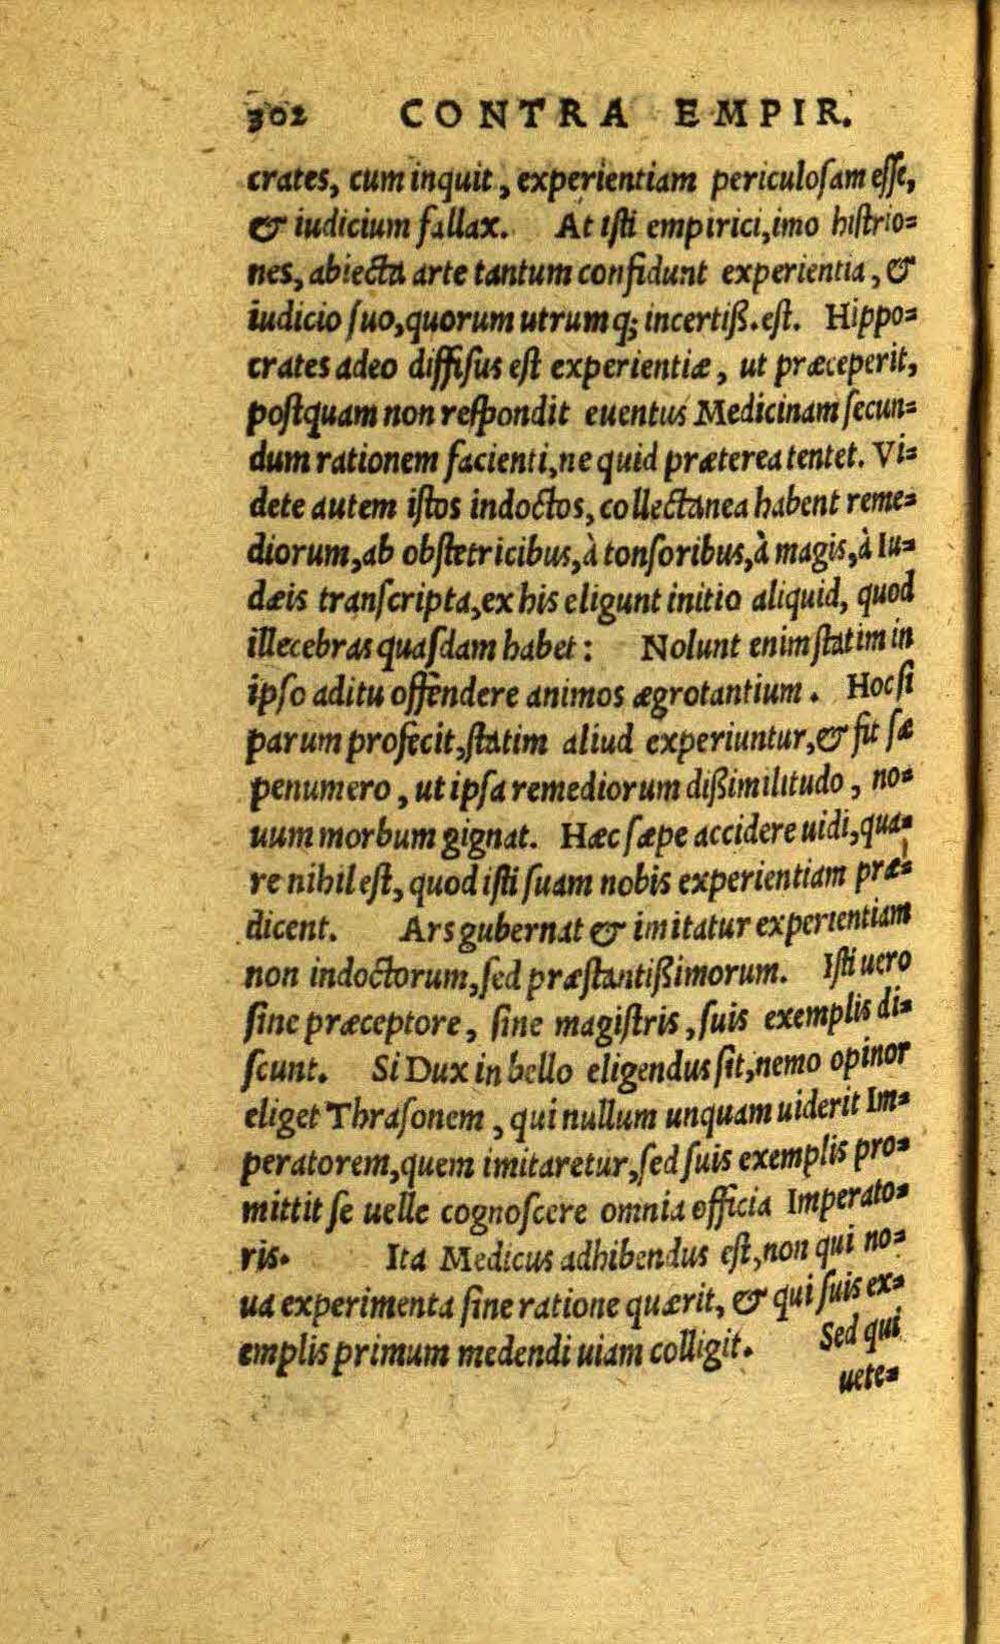 302 CONTRA EMPIR.
crates, cum inquit, experientiam periculoſam eſſe,
& iudicium fallax. At iſti empirici, imo hiſtrio=
nes, abiecta arte tantum confidunt experientia, &
iudicio ſuo, quorum utrumq; incertiß. eſt. Hippo=
crates adeo diffiſus eſt experientiæ, ut præceperit,
poſtquam non reſpondit euentus Medicinam ſecun=
dum rationem facienti, ne quid præterea tentet. Vi=
dete autem iſtos indoctos, collectanea habent reme=
diorum, ab obſtetricibus, à tonſoribus, à magis, à Iu=
dæis tranſcripta, ex his eligunt initio aliquid, quod
illecebras quaſdam habet: Nolunt enim ſtatim in
ipſo aditu offendere animos ægrotantium. Hoc ſi
parum profecit, ſtatim aliud experiuntur, & fit ſæ
penumero, ut ipſa remediorum dißimilitudo, no=
uum morbum gignat. Hæc ſæpe accidere uidi, qua=
re nihil eſt, quod iſti ſuam nobis experientiam præ=
dicent. Ars gubernat & imitatur experientiam
non indoctorum, ſed præſtantißimorum. Iſti uero
ſine præceptore, ſine magiſtris, ſuis exemplis di=
ſcunt. Si Dux in bello eligendus ſit, nemo opinor
eliget Thraſonem, qui nullum unquam uiderit Im=
peratorem, quem imitaretur, ſed ſuis exemplis pro=
mittit ſe uelle cognoſcere omnia officia Imperato=
ris. Ita Medicus adhibendus eſt, non qui no=
ua experimenta ſine ratione quærit, & qui ſuis ex=
emplis primum medendi uiam colligit. Sed qui
uete=